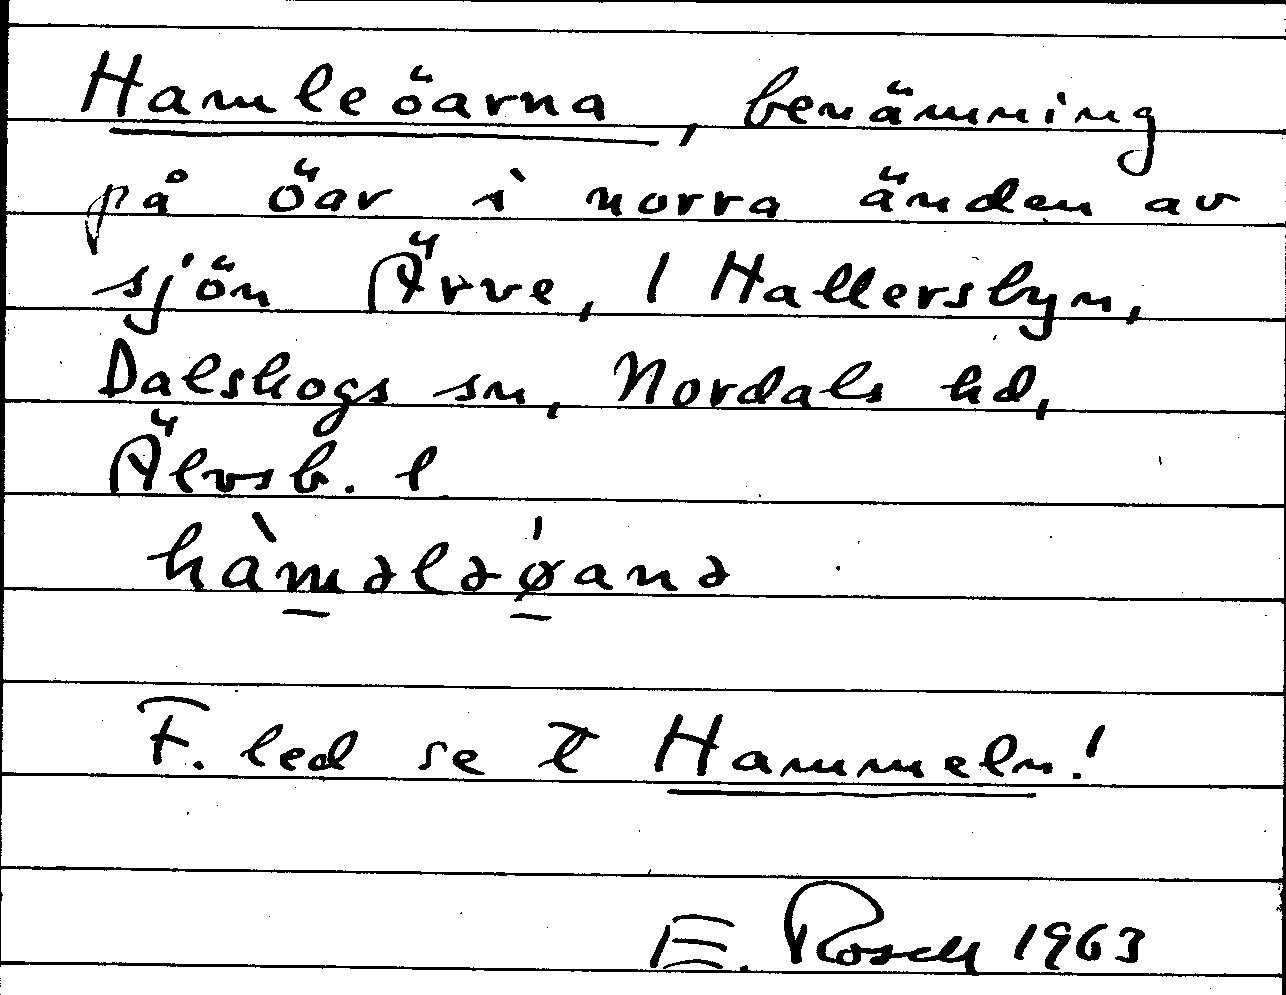 Hamleöarna, benämning
på öar i norra änden av
sjön Ärve, l Hallersbyn,
Dalskogs sn, Nordals hd,
Älvsb. l
hàm̲ələǿ̲anə
F. led se t Hammeln!
E. Rosell 1963